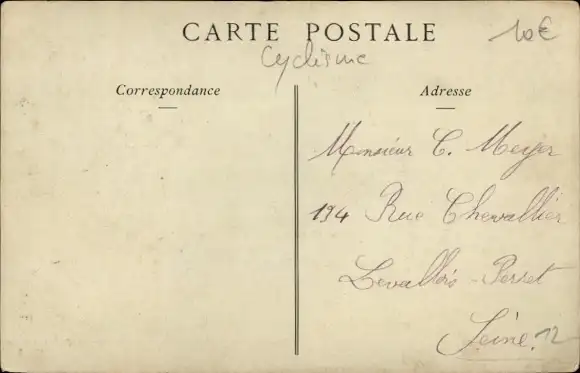 CARTE POSTALE
10€
Cyclisme
Correspondance
Adresse
Monsieur C. Meyer
194 Rue Chevallier
Levallois-Perret
Seine.
12